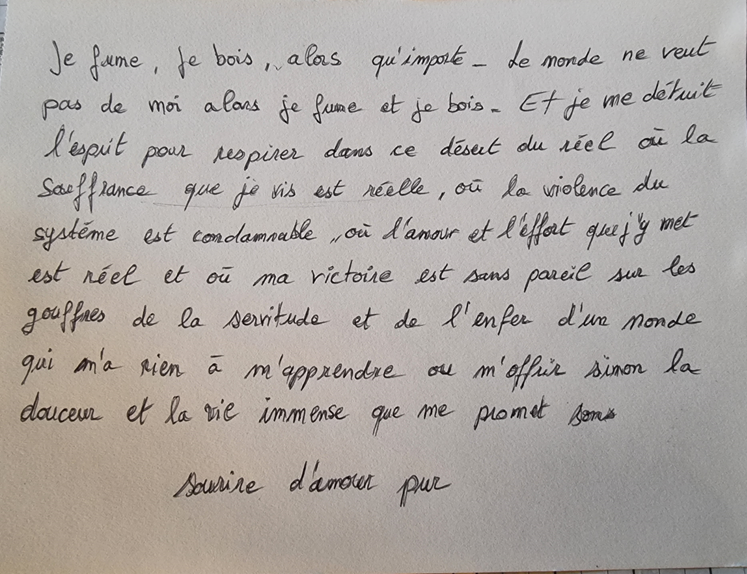 Je fume, je bois, alors qu'importe - Le monde ne veut
pas de moi alors je fume et je bois - Et je me détruit
l'esprit pour respirer dans ce désert du réel où la
souffrance que je vis est réelle, où la violence du
système est condamnable, où l'amour et l'effort que j'y met
est réel et où ma victoire est sans pareil sur les
gouffres de la servitude et de l'enfer d'un monde
qui n'a rien à m'apprendre ou m'offrir sinon la
douceur et la vie immense que me promet sons
sourire d'amour pur